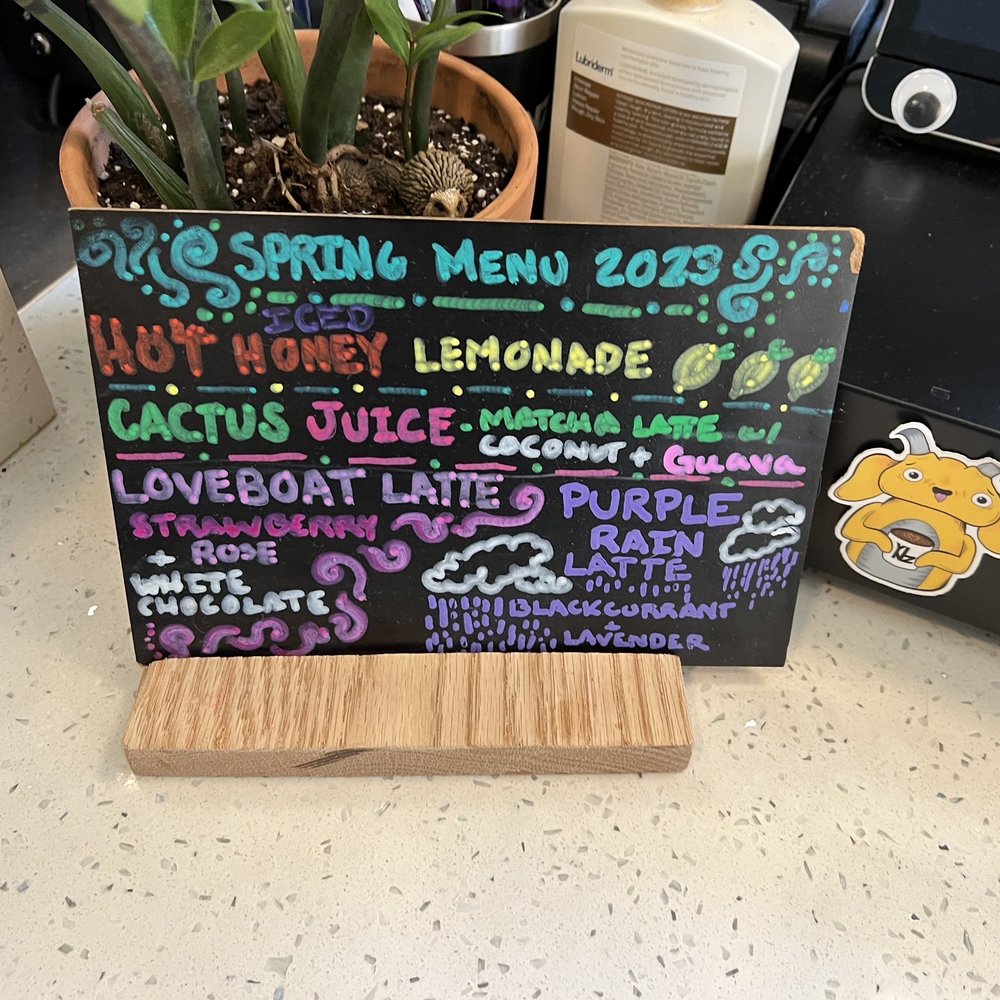 Lubriderm
SPRING MENU 2023
ICED
HOT HONEY LEMONADE
CACTUS JUICE - MATCHA LATTE w/
COCONUT + Guava
LOVEBOAT LATTE
STRAWBERRY
+ ROSE
WHITE
CHOCOLATE
PURPLE
RAIN
LATTE
BLACKCURRANT
+
LAVENDER